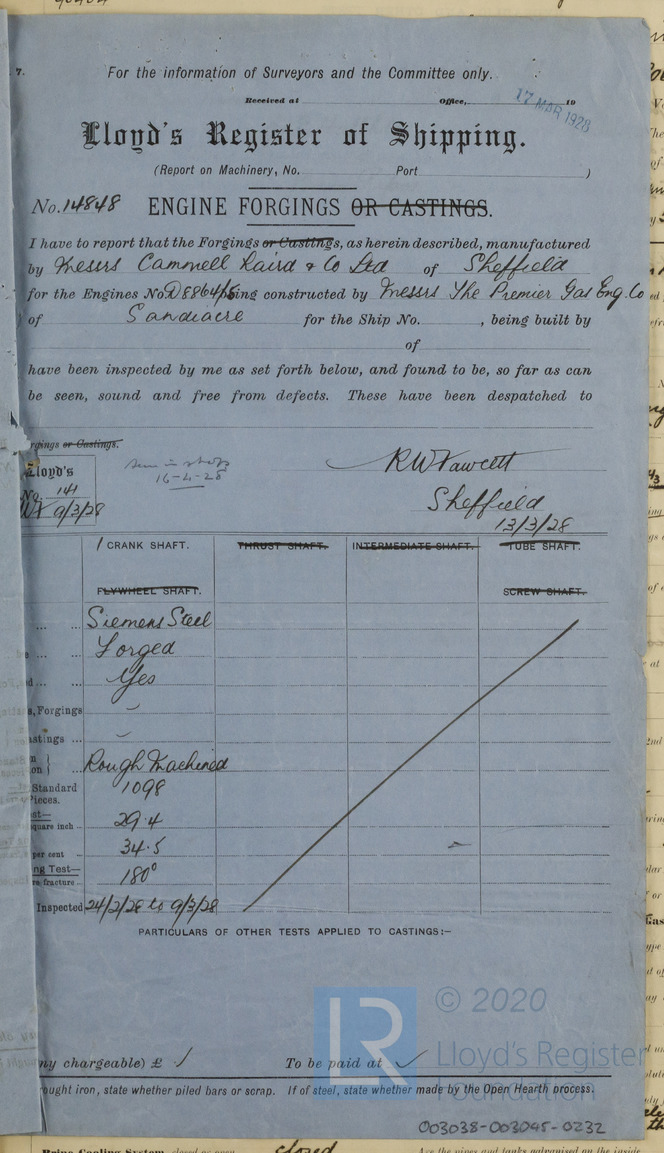 7.
For the information of Surveyors and the Committee only.
Received at Office, 19
17 MAR 1928
Lloyd's Register of Shipping.
(Report on Machinery, No. Port )
No. 14848 ENGINE FORGINGS OR CASTINGS.
I have to report that the Forgings or Castings, as herein described, manufactured
by Messrs Cammell Laird & Co Ltd of Sheffield
for the Engines No. D8864/5 being constructed by Messrs The Premier Gas Eng. Co
of Sandiacre for the Ship No. , being built by
of
have been inspected by me as set forth below, and found to be, so far as can
be seen, sound and free from defects. These have been despatched to
rgings or Castings.
Lloyd's
No. 141
9/3/28
seen in shops
16-4-28
RW Fawcett
Sheffield
13/3/28
1 CRANK SHAFT. THRUST SHAFT. INTERMEDIATE SHAFT. TUBE SHAFT.
FLYWHEEL SHAFT. SCREW SHAFT.
... ... Siemens Steel
... ... Forged
... Yes
s, Forgings –
astings ... –
on ... Rough Machined
Standard 1098
Pieces.
st—
square inch .. 29.4
per cent 34.5
ng Test— 180°
re fracture ..
Inspected 24/2/28 to 9/3/28
PARTICULARS OF OTHER TESTS APPLIED TO CASTINGS:–
ny chargeable) £ To be paid at
ought iron, state whether piled bars or scrap. If of steel, state whether made by the Open Hearth process.
LR
© 2020
Lloyd's Register
Foundation
003038-003045-0232
closed